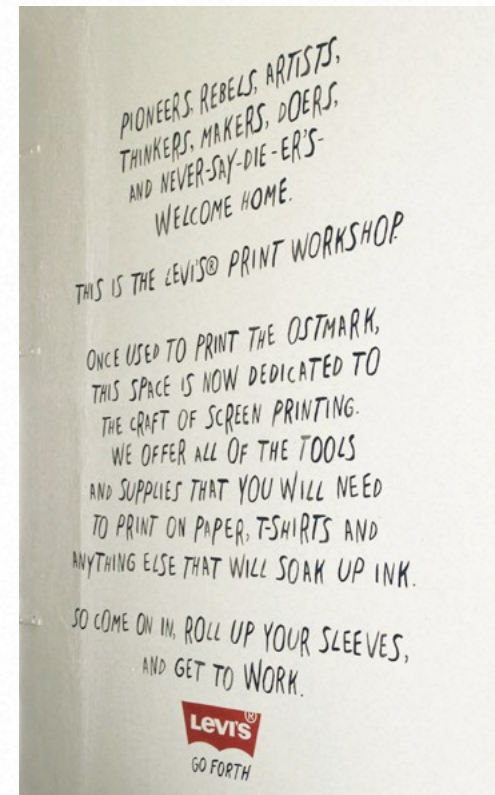 PIONEERS, REBELS, ARTISTS,
THINKERS, MAKERS, DOERS,
AND NEVER-SAY-DIE-ER'S-
WELCOME HOME.
THIS IS THE LEVI'S® PRINT WORKSHOP.
ONCE USED TO PRINT THE OSTMARK,
THIS SPACE IS NOW DEDICATED TO
THE CRAFT OF SCREEN PRINTING.
WE OFFER ALL OF THE TOOLS
AND SUPPLIES THAT YOU WILL NEED
TO PRINT ON PAPER, T-SHIRTS AND
ANYTHING ELSE THAT WILL SOAK UP INK.
SO COME ON IN, ROLL UP YOUR SLEEVES,
AND GET TO WORK.
LEVI'S®
GO FORTH